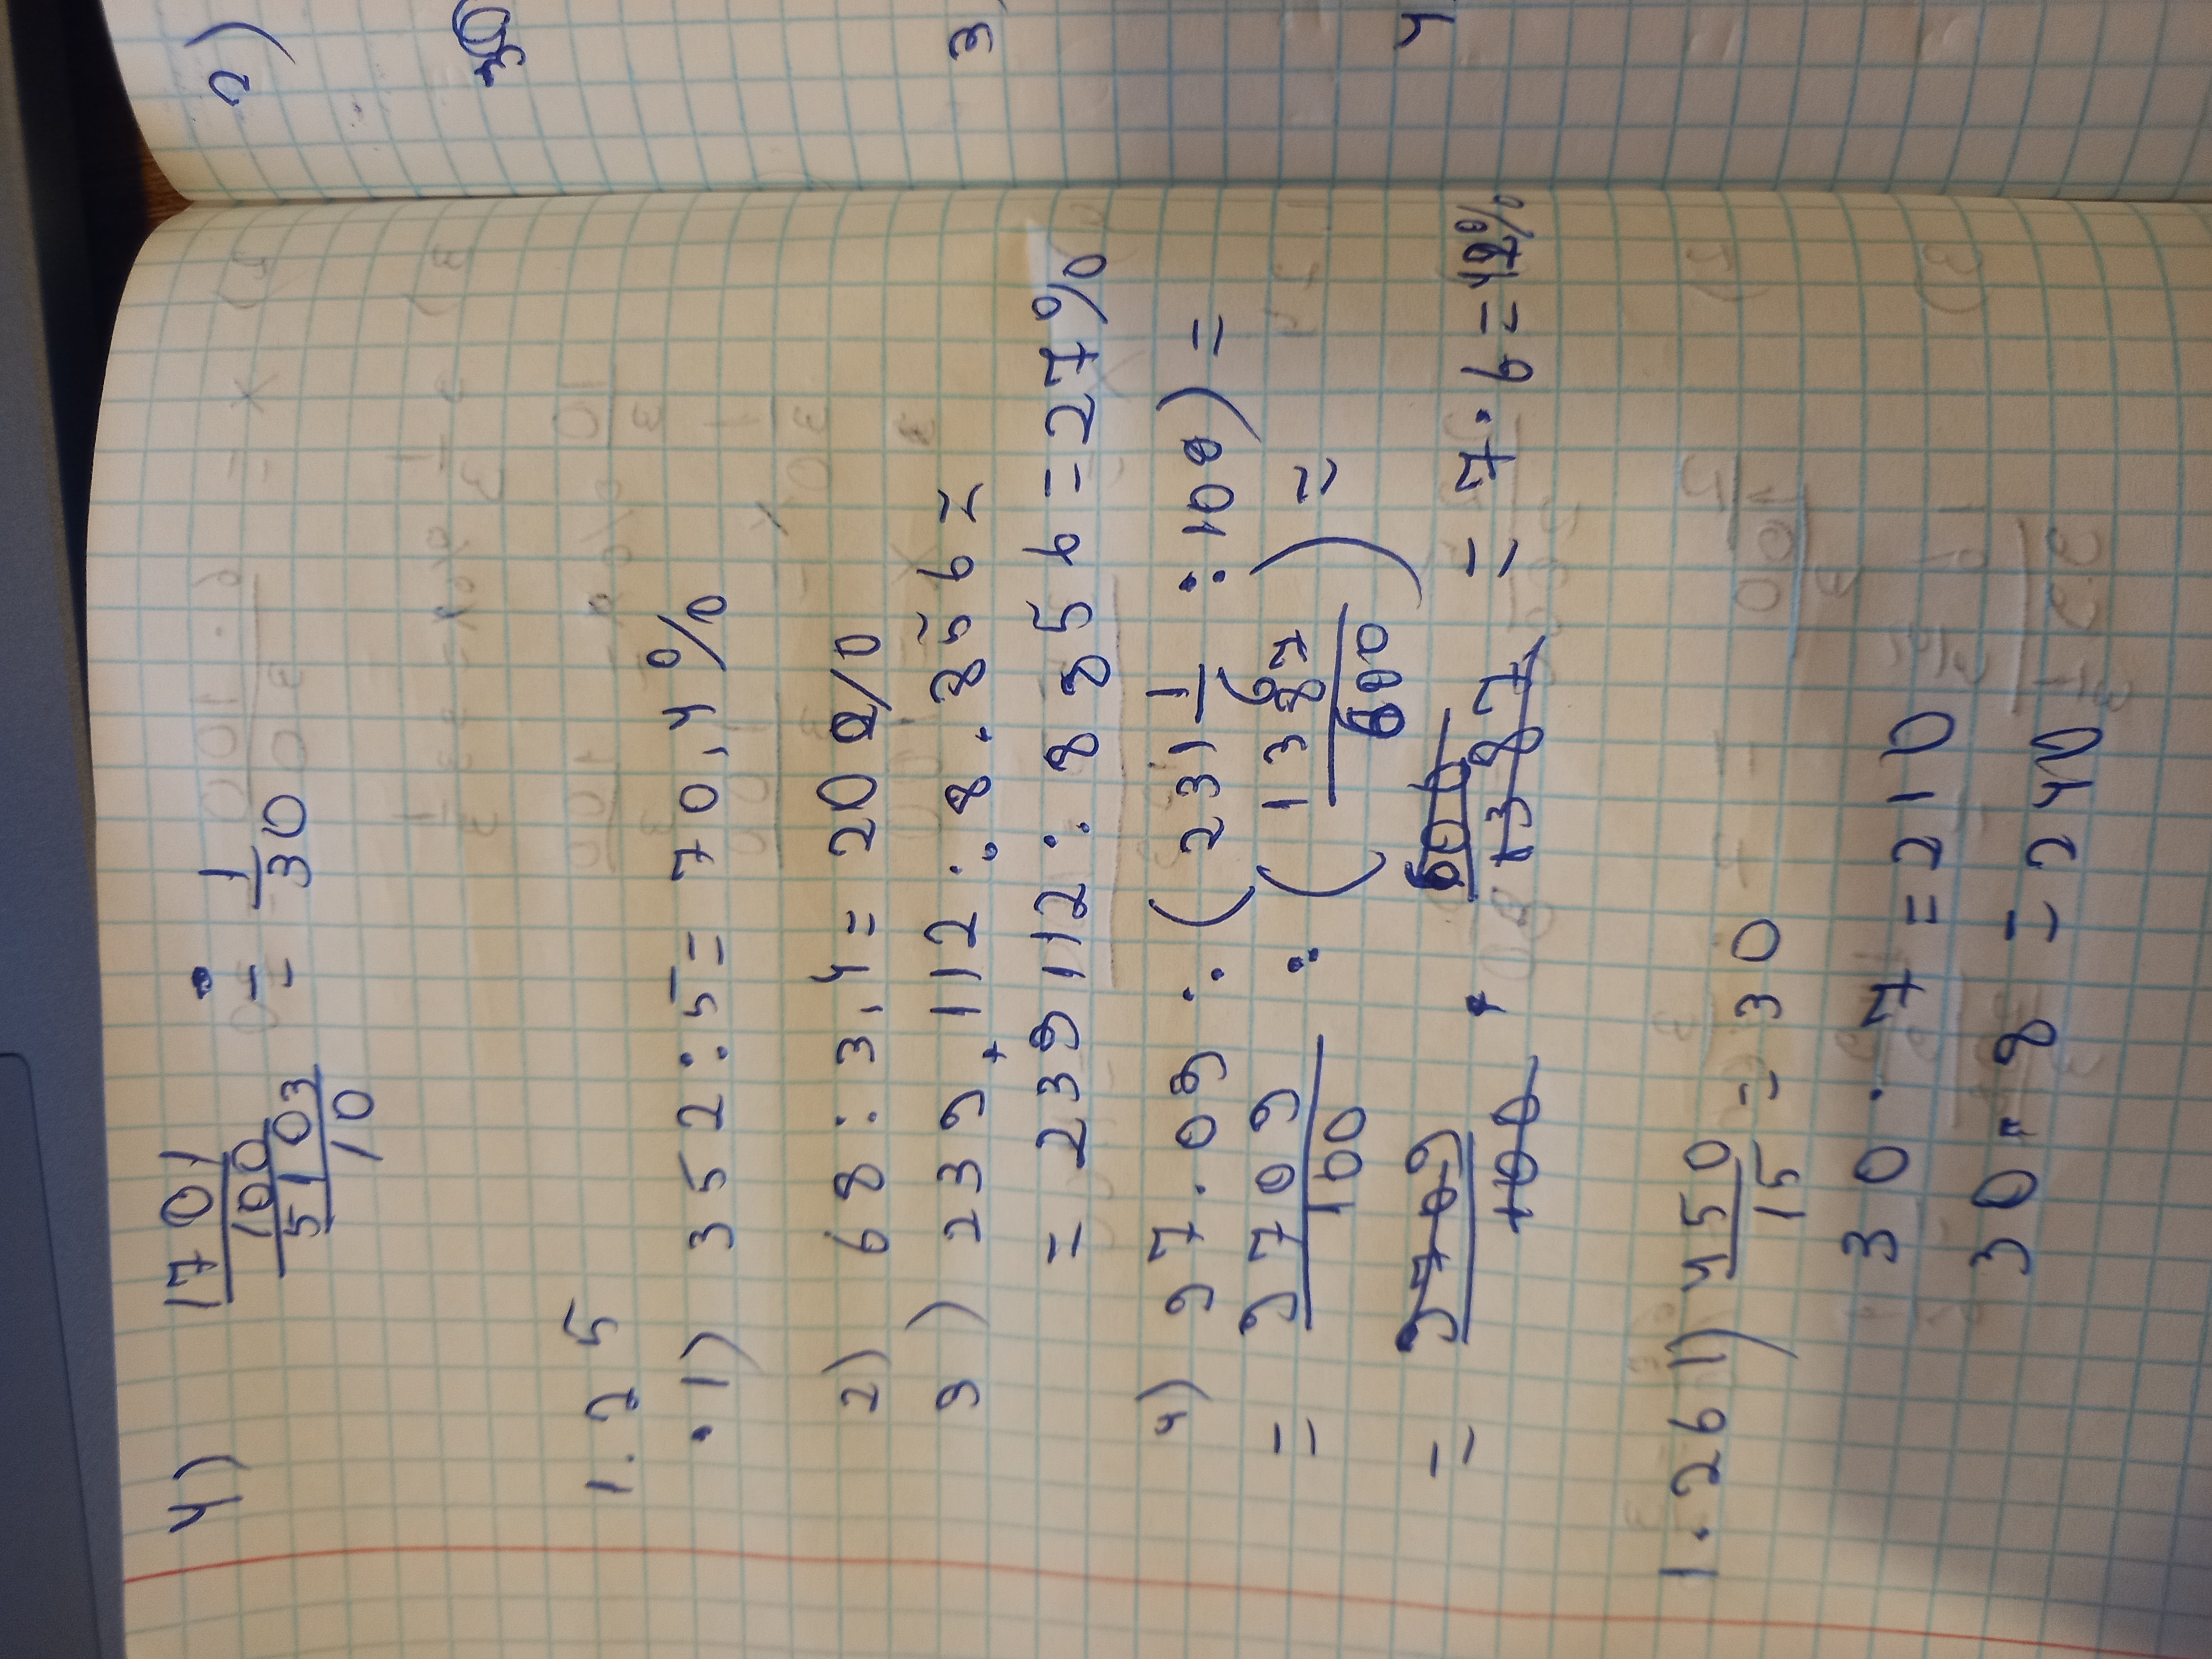 4) 1701/100 / 5103/10 = 1/30
1.25
1) 352:5= 70,4%
2) 68:3,4= 20%
3) 239,112:8.856=
= 239112:8856=27%
4) 97.09:(231 1/6 :100)=
= 9709/100 : (1387/600) =
= 9709/100 · 600/1387 = 7·6=42%
1.26 1) 450/15 = 30
30·7=210
30·8=240
2)
30
3)
4